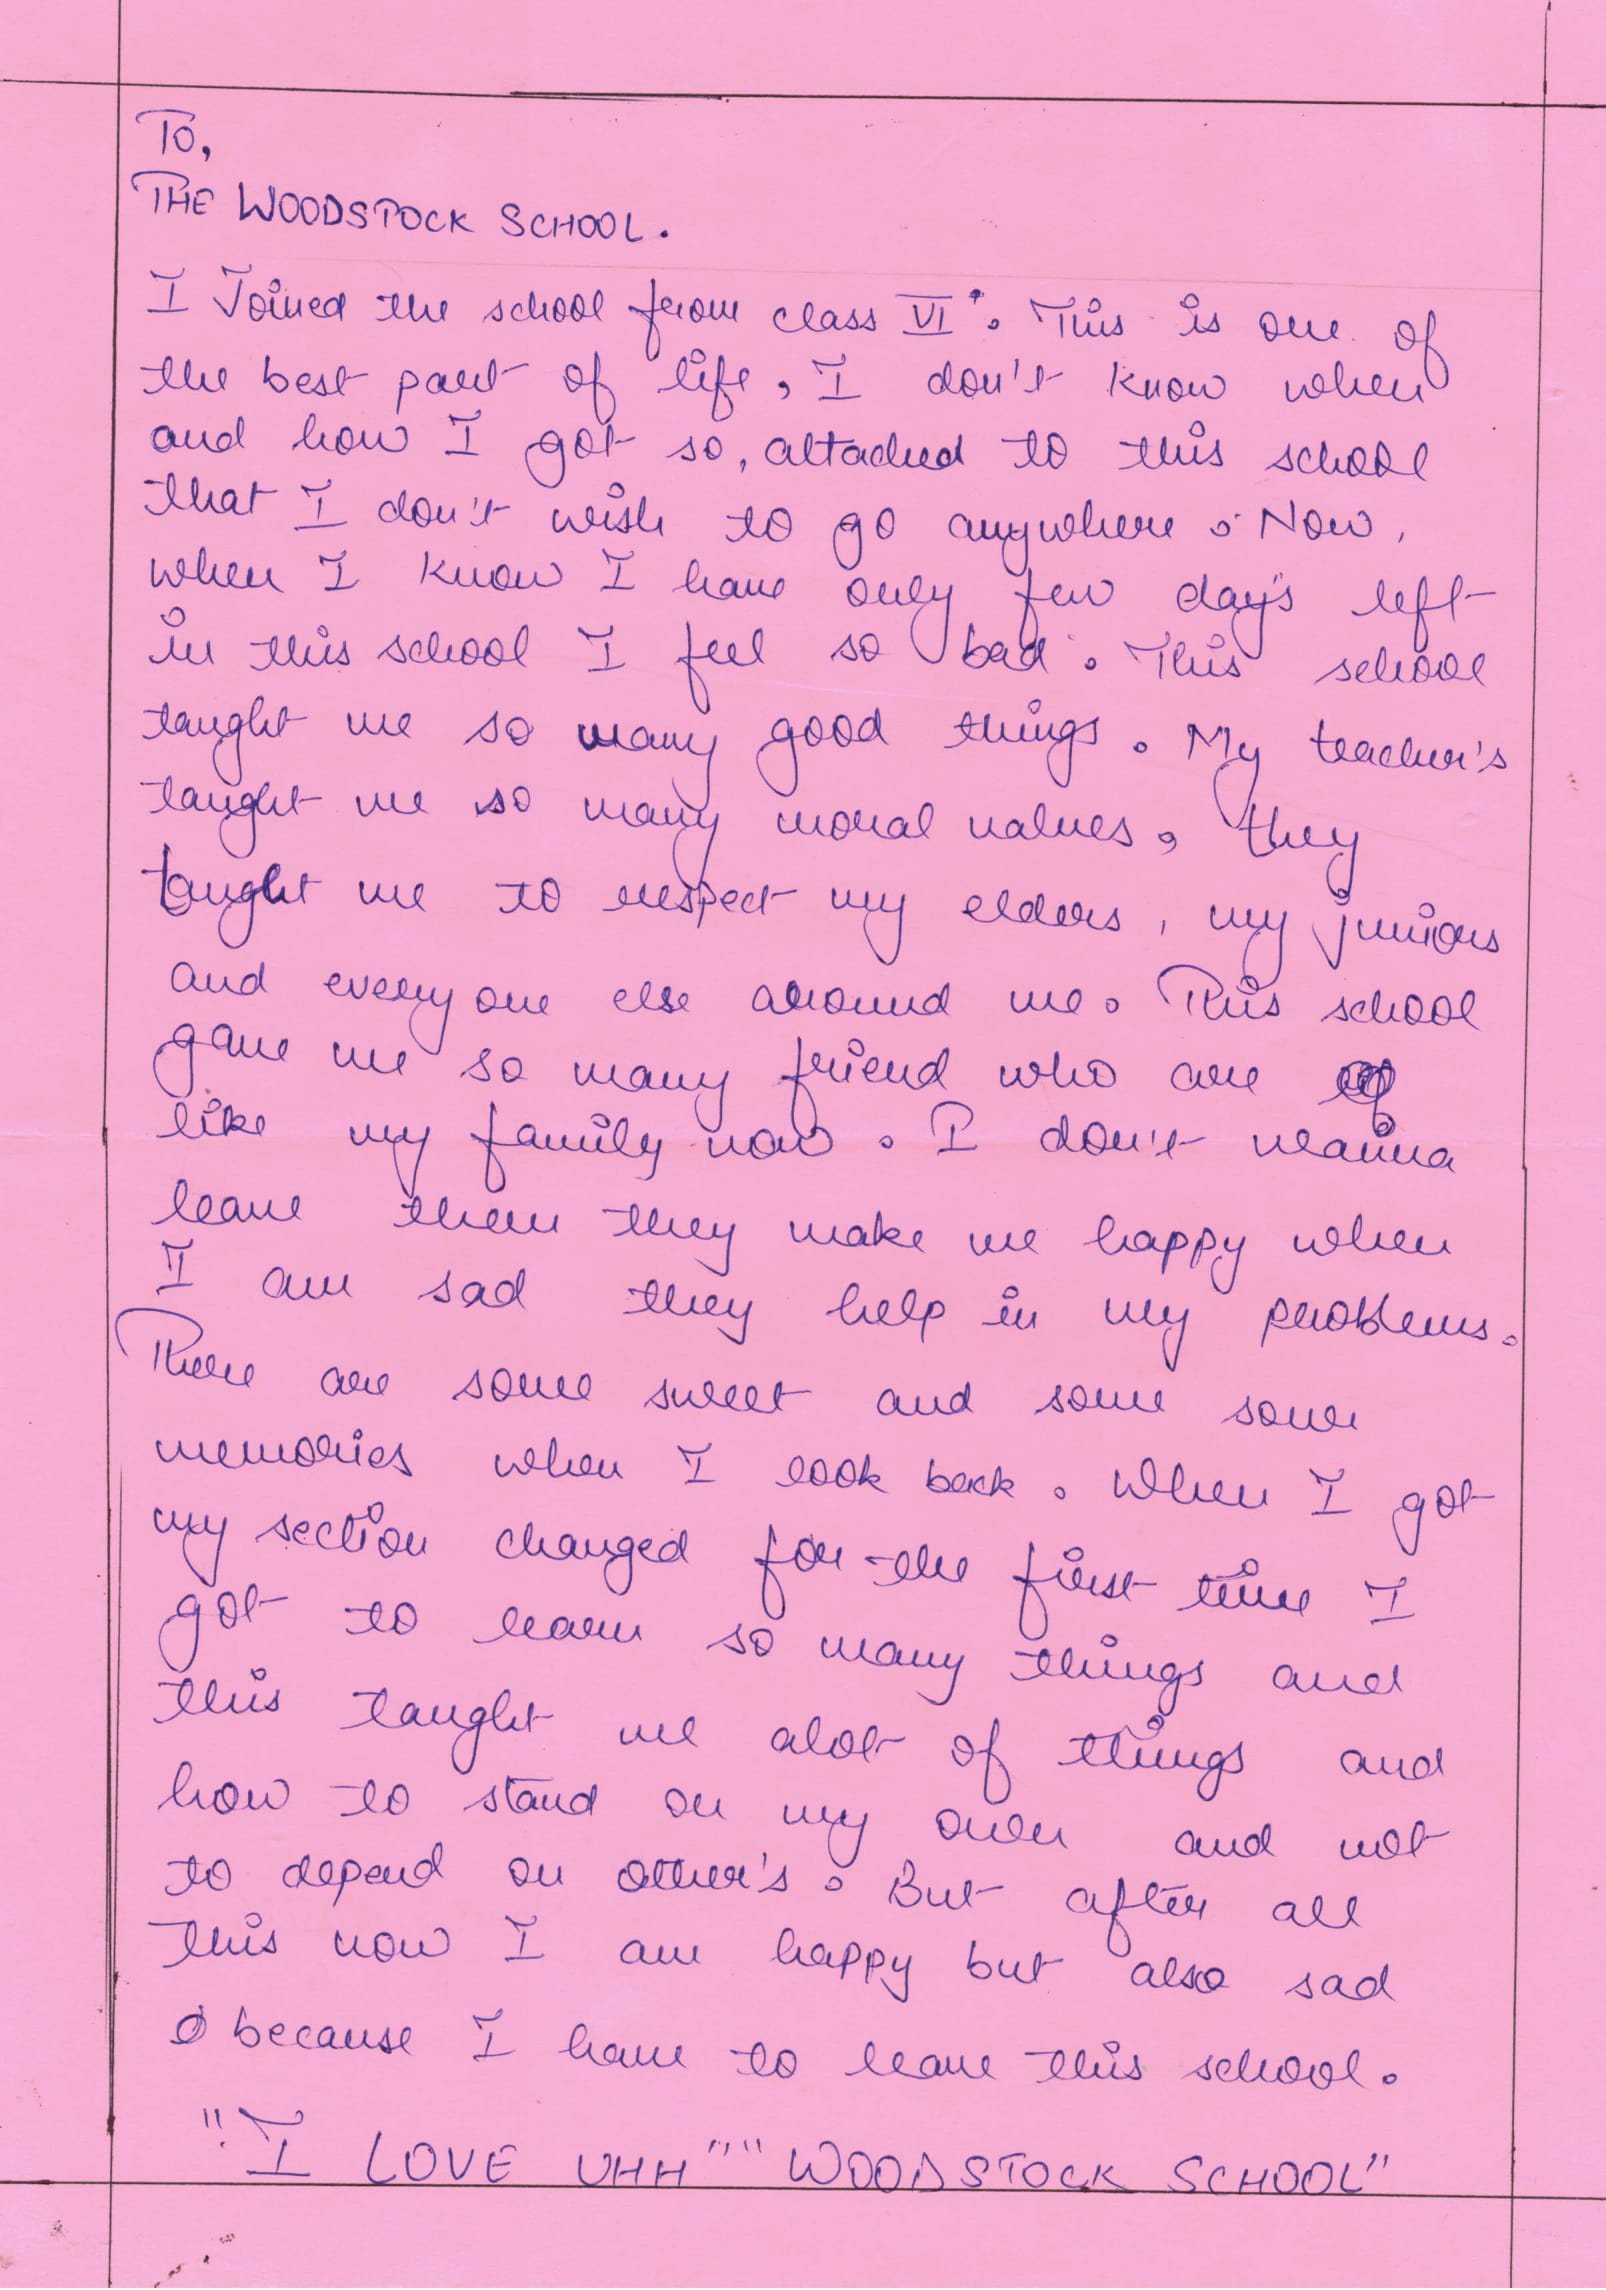 To,
THE WOODSTOCK SCHOOL.
I Joined the school from class VI. This is one of
the best part of life, I don't know when
and how I got so, attached to this school
that I don't wish to go anywhere. Now,
when I know I have only few day's left
in this school I feel so bad. This school
taught me so many good things. My teacher's
taught me so many moral values, they
taught me to respect my elders, my juniors
and everyone else around me. This school
gave me so many friend who are
like my family now. I don't wanna
leave them they make me happy when
I am sad they help in my problems.
There are some sweet and some sour
memories when I look back. When I got
my section changed for the first time I
got to learn so many things and
this taught me alot of things and
how to stand on my own and not
to depend on other's. But after all
this now I am happy but also sad
because I have to leave this school.
"I LOVE UHH" "WOODSTOCK SCHOOL"